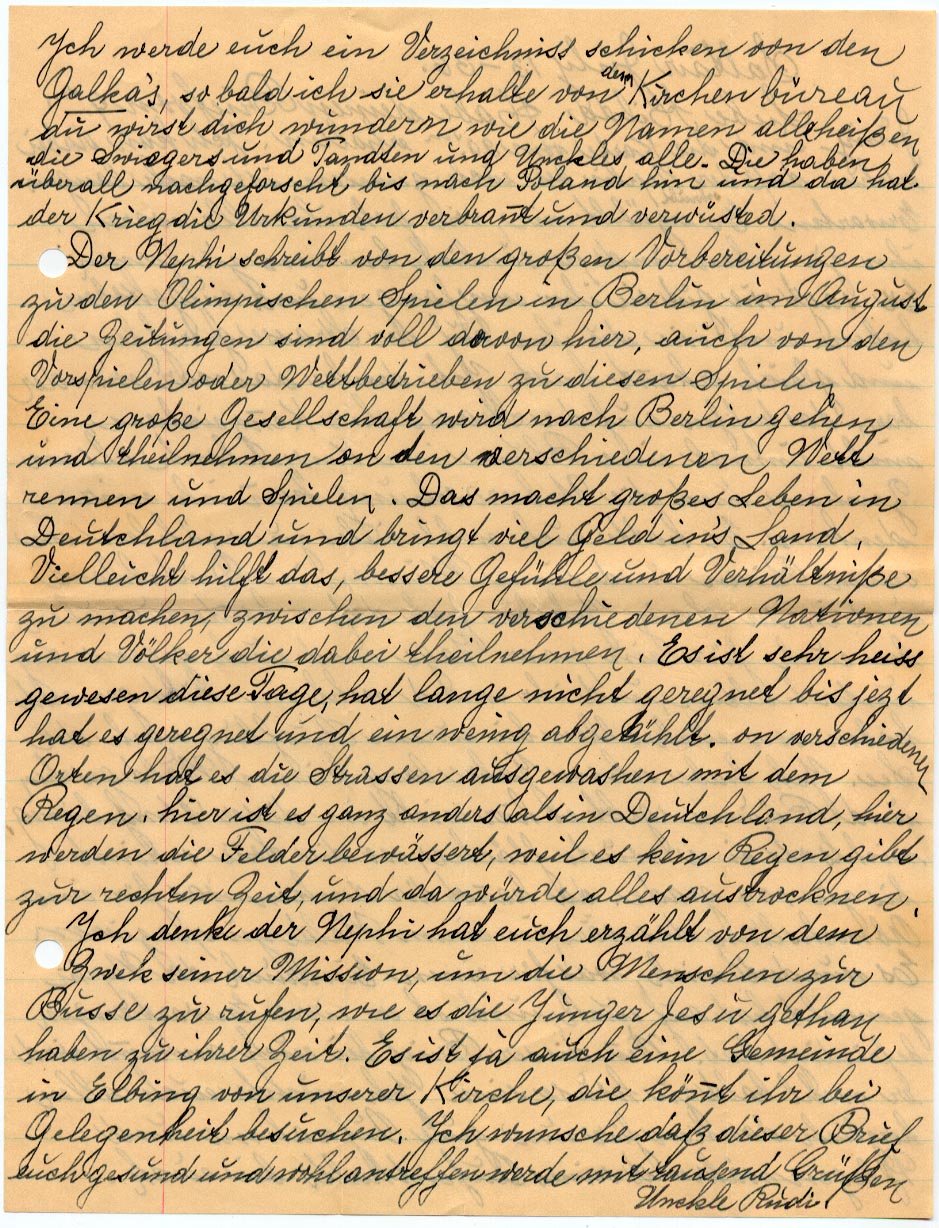 Ich werde euch ein Verzeichniss schicken von den
Galka's, so bald ich sie erhalte von dem Kirchenbüreau
du wirst dich wundern wie die Namen alle heißen
die Swiegers und Tandten und Unckles alle. Die haben
überall nachgeforscht bis nach Poland hin und da hat
der Krieg die Urkunden verbrant und verwüsted.
Der Nephi schreibt von den großen Vorbereitungen
zu den Olimpischen Spielen in Berlin im August
die Zeitungen sind voll davon hier, auch von den
Vorspielen oder Wettbetrieben zu diesen Spielen
Eine große Gesellschaft wird nach Berlin gehen
und theilnehmen an den verschiedenen Wett
rennen und Spielen. Das macht großes Leben in
Deutchland und bringt viel Geld in's Land.
Vielleicht hilft das, bessere Gefühle und Verhältniße
zu machen, zwischen den verschiedenen Nationen
und Völker die dabei theilnehmen. Es ist sehr heiss
gewesen diese Tage, hat lange nicht geregnet bis jezt
hat es geregnet und ein wenig abgekühlt. an verschiedenen
Orten hat es die Strassen ausgewashen mit dem
Regen. hier ist es ganz anders als in Deutchland, hier
werden die Felder bewässert, weil es kein Regen gibt
zur rechten Zeit, und da würde alles austrocknen.
Ich denke der Nephi hat euch erzählt von dem
Zwek seiner Mission, um die Menschen zur
Busse zu rufen, wie es die Junger Jesu gethan
haben zu ihrer Zeit. Es ist ja auch eine Gemeinde
in Elbing von unserer Kirche, die kön̄t ihr bei
Gelegenheit besuchen. Ich wunsche daß dieser Brief
euch gesund und wohl antreffen werde mit tausend Grüßen
Unckle Rudi.